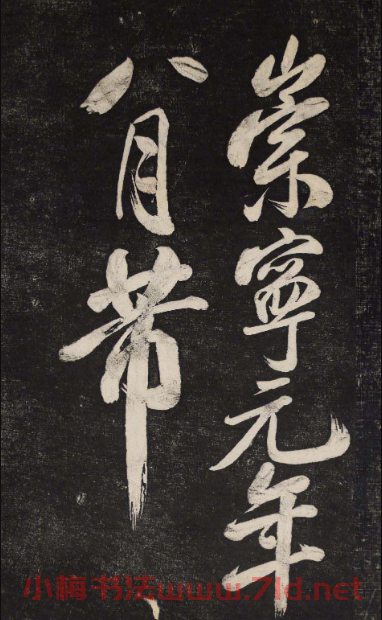 崇寧元年
八月芾
小楠书法www.7ld.net